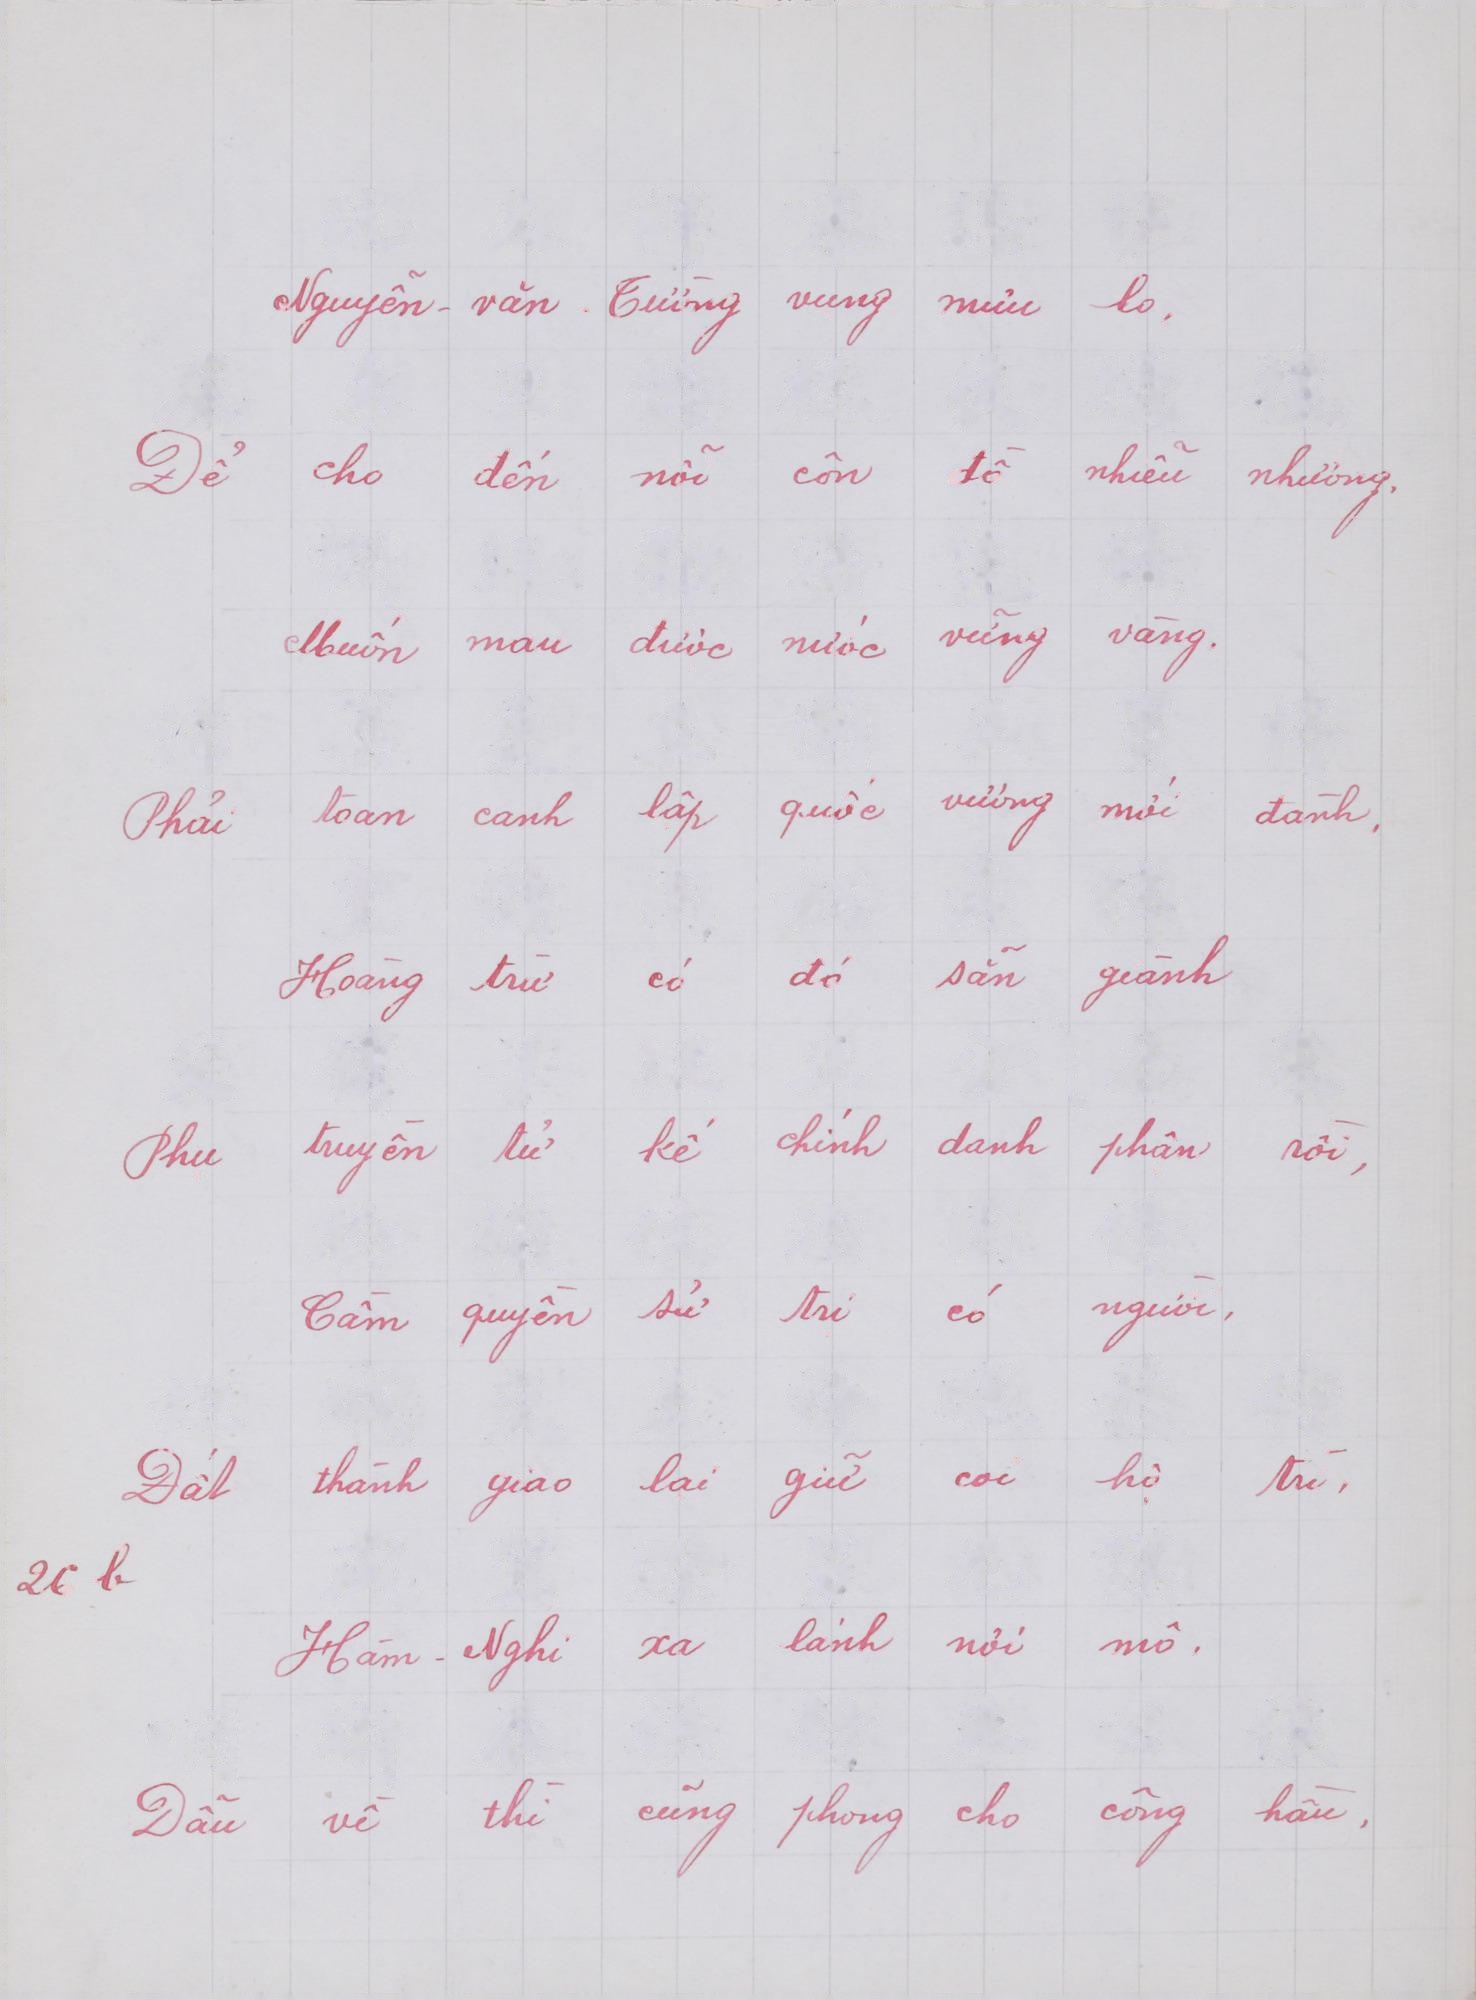 Nguyễn - văn Tường vung mưu lo.
Để cho đến nỗi côn đồ nhiễu nhương.
Muốn mau được nước vững vàng.
Phải toan canh lập quốc vương mới đành,
Hoàng trừ có đó sẵn giành
Phu truyền tử kế chính danh phân rồi,
Cầm quyền sử tri có người,
Đất thành giao lai giữ coi hộ trì,
26 b
Hàm - Nghi xa lánh nơi mô.
Dẫu về thì cũng phong cho công hầu,